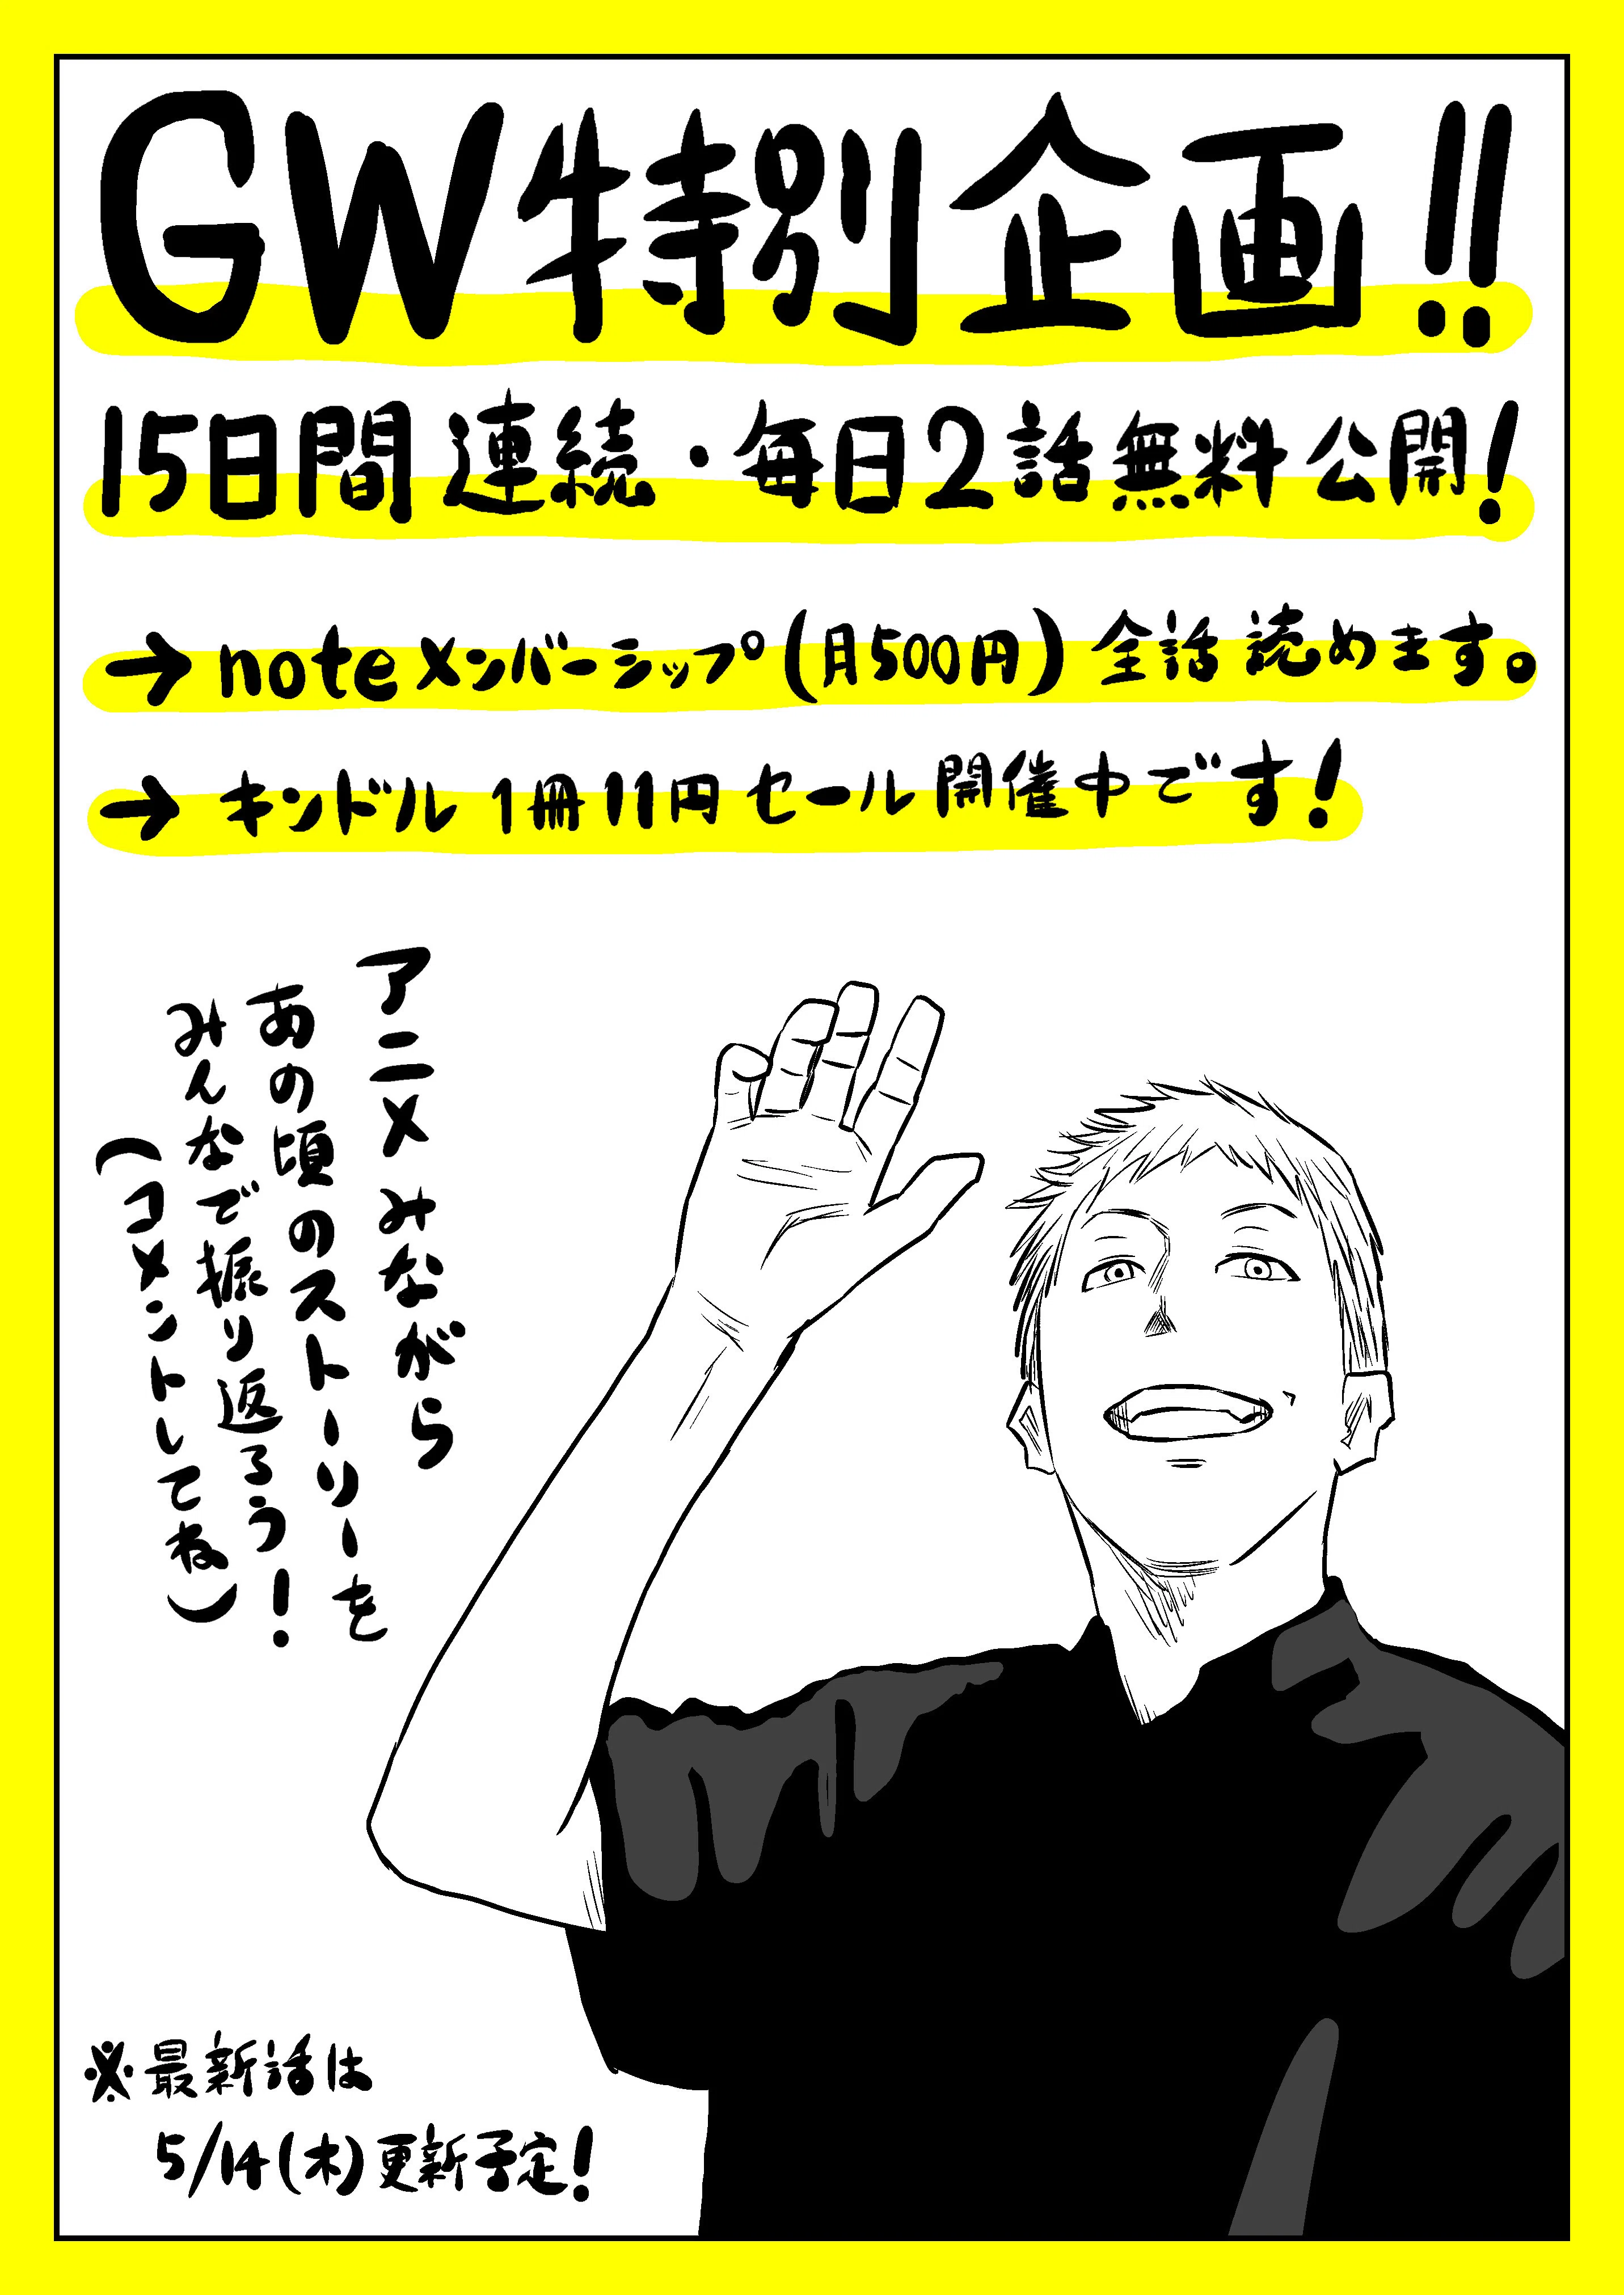 GW特別企画!!
15日間連続・毎日2話無料公開!
→noteメンバーシップ(月500円)全話読めます。
→キンドル1冊11円セール開催中です!
アニメみながら
あの頃のストーリーを
みんなで振り返ろう!
(コメントしてね)
※最新話は
5/14(木)更新予定!